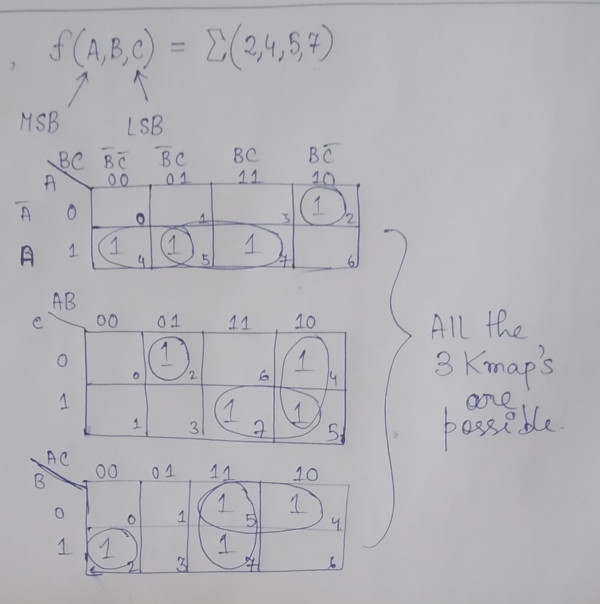 , f(A,B,C) = Σ(2,4,5,7)
MSB LSB
BC B̅C̅ B̅C BC BC̅
A 00 01 11 10
A̅ 0 0 1 3 1 2
A 1 1 4 1 5 1 7 6
AB
C 00 01 11 10
0 0 1 2 6 1 4
1 1 3 1 7 1 5
AC
B 00 01 11 10
0 0 1 1 5 1 4
1 1 2 3 1 7 6
All the
3 Kmap's
are
possible.